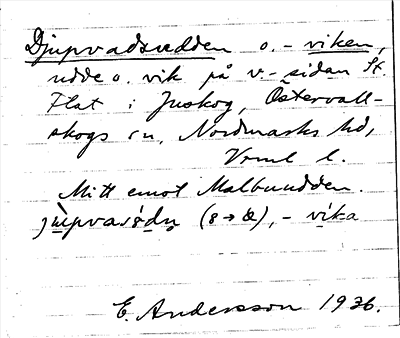 Djupvadsudden o. -viken,
udde o. vik på v.-sidan St.
Flat i Juskog, Östervall-
skogs sn, Nordmarks hd,
Vrml l.
Mitt emot Malbuudden.
-vika
E. Andersson 1936.